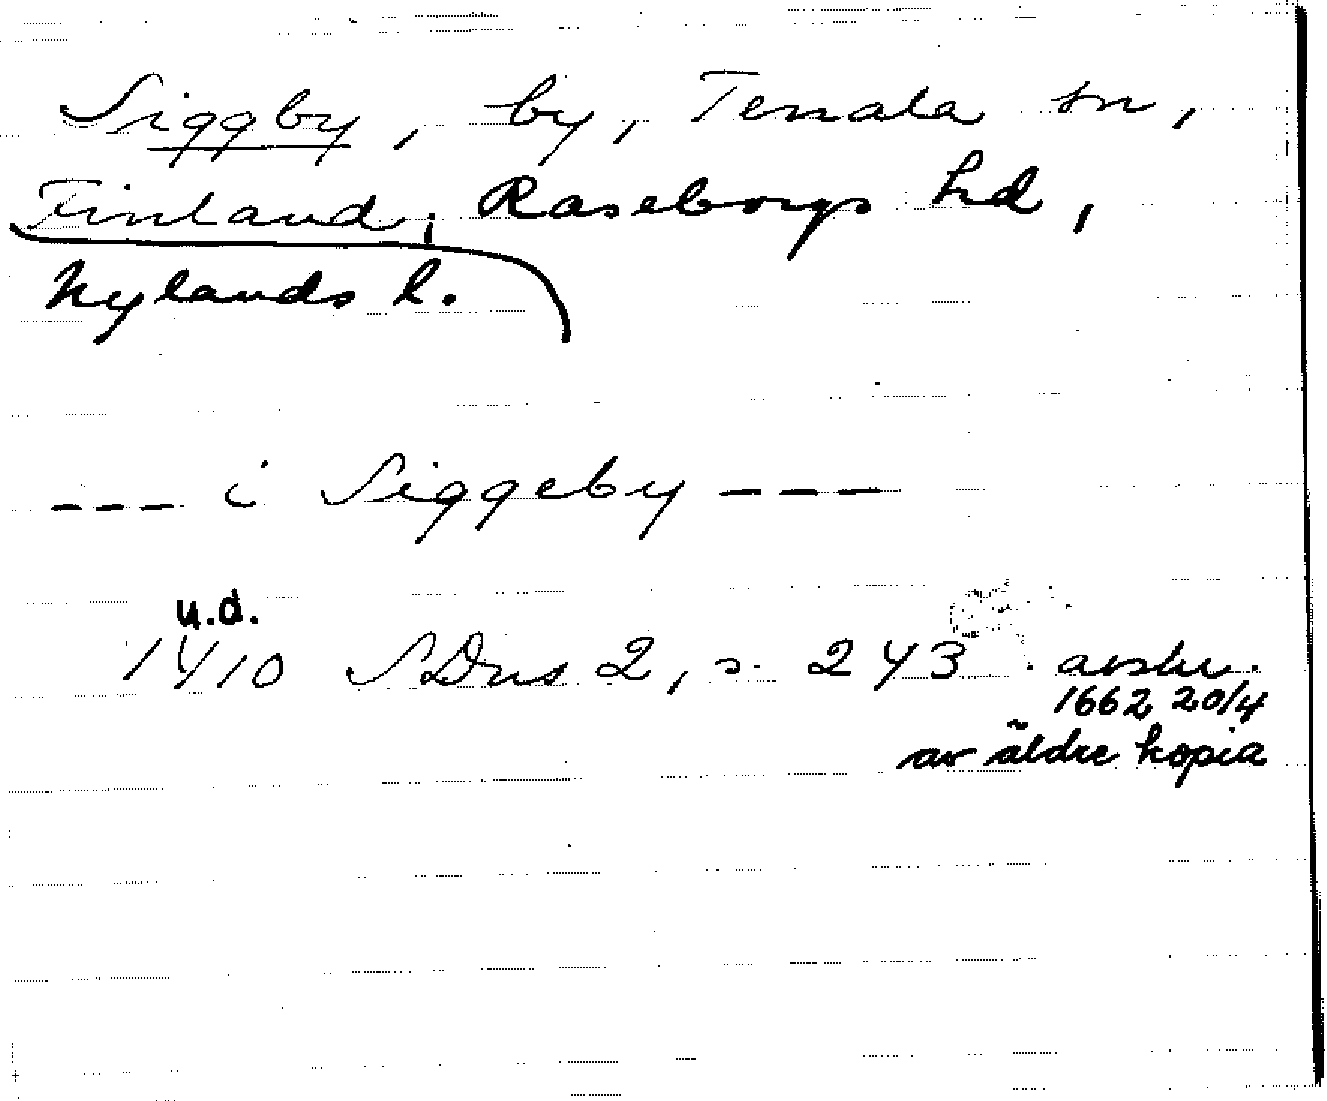 Siggby, by, Tenala sn,
Finland, Raseborgs hd,
Nylands l.
--- i Siggeby ---
u.d.
1410 SDns 2, s. 243. avskr.
1662 20/4
av äldre kopia